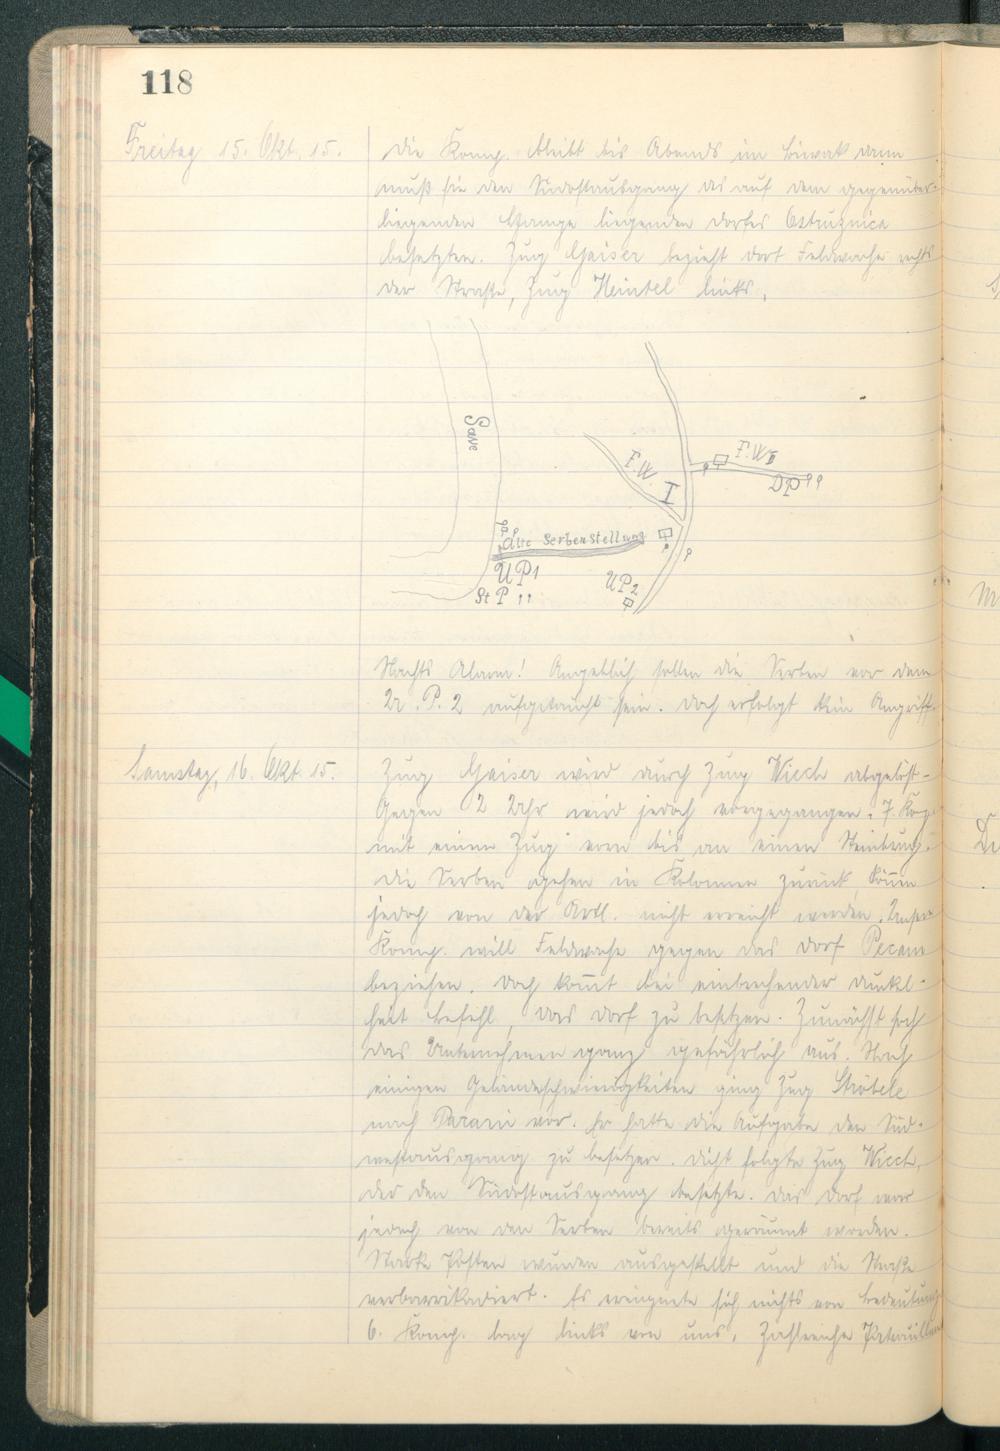 118
Freitag 15. Okt. 15.
Die Komp. bleibt bis Abends im Biwak dann
muß sie den Südostausgang des auf dem gegenüber-
liegenden Hange liegenden Dorfes Ostruznica
besetzten. Zug Gaiser bezieht dort Feldwache rechts
der Straße, Zug Heintel links.
Save
F.W. I
F.W. II
DP
Alte Serbenstellung
UP1
St P
UP2
Nachts Alarm! Angeblich sollen die Serben vor dem
U. P. 2 aufgetaucht sein. Doch erfolgt kein Angriff.
Samstag, 16. Okt. 15.
Zug Gaiser wird durch Zug Wiech abgelöst-
Gegen 2 Uhr wird jedoch vorgegangen. 7. Komp.
mit einem Zug vorn bis an einen Steinbruch.
Die Serben gehen in Kolonnen zurück, können
jedoch von der Artl. nicht erreicht werden. Unsere
Komp. will Feldwache gegen das Dorf
beziehen. Doch kommt bei einbrechender Dunkel-
heit Befehl, das Dorf zu besetzen. Zunächst sah
das Unternehmen ganz gefährlich aus. Nach
einigen Geländeschwierigkeiten ging Zug Ströbele
nach vor. Er hatte die Aufgabe den Süd-
westausgang zu besetzen. Dicht folgte Zug Wiech,
der den Südostausgang besetzte. Das Dorf war
jedoch von den Serben bereits geräumt worden.
Starke Posten wurden ausgestellt und die Straße
verbarrikadiert. Es ereignete sich nichts von Bedeutung
6. Komp. lag links von uns. Zahlreiche Patrouillen